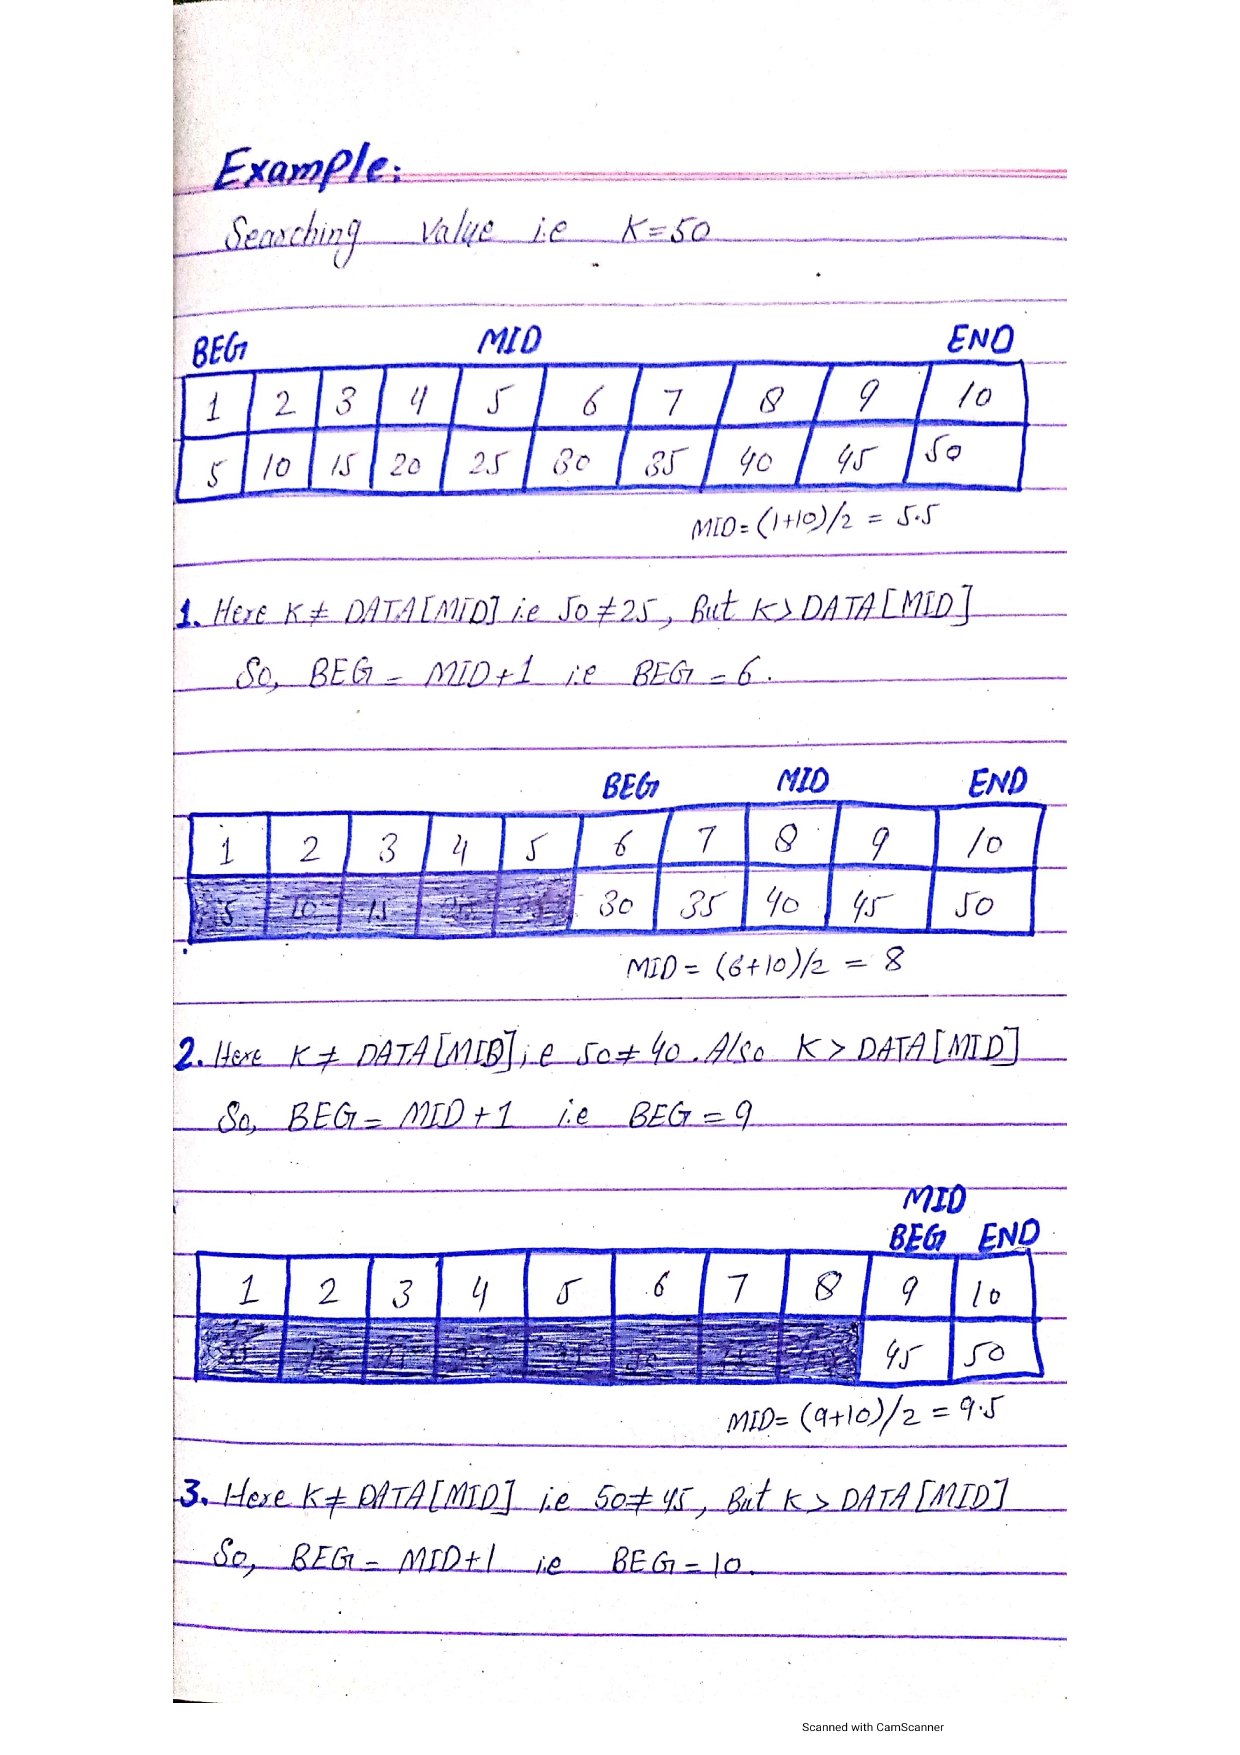 Example:
Searching value i.e K=50
BEG MID END
1 2 3 4 5 6 7 8 9 10
5 10 15 20 25 30 35 40 45 50
MID=(1+10)/2 = 5.5
1. Here K≠ DATA[MID] i.e 50≠25, But K>DATA[MID]
So, BEG = MID+1 i.e BEG=6.
BEG MID END
1 2 3 4 5 6 7 8 9 10
5 10 15 30 35 40 45 50
MID = (6+10)/2 = 8
2. Here K≠ DATA[MID]i.e 50≠40. Also K > DATA[MID]
So, BEG= MID+1 i.e BEG=9
MID
BEG END
1 2 3 4 5 6 7 8 9 10
45 50
MID= (9+10)/2 = 9.5
3. Here K≠ DATA[MID] i.e 50≠45, But K > DATA[MID]
So, BEG= MID+1 i.e BEG=10.
Scanned with CamScanner